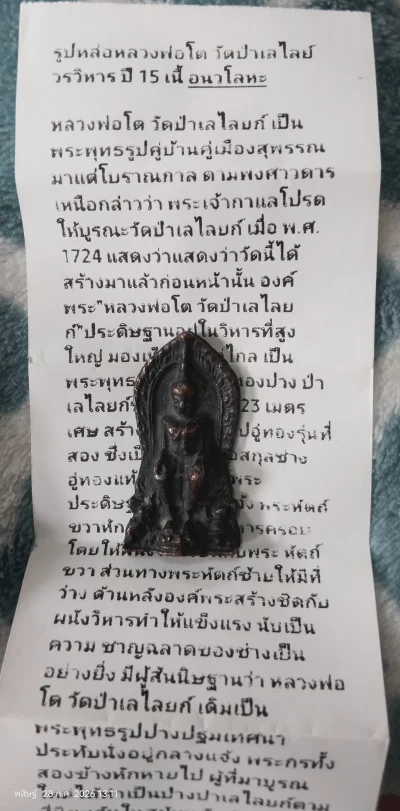 รูปหล่อหลวงพ่อโต วัดป่าเลไลย์
วรวิหาร ปี 15 เนื้ อนวโลหะ
หลวงพ่อโต วัดป่าเลไลยก์ เป็น
พระพุทธรูปคู่บ้านคู่เมืองสุพรรณ
มาแต่โบราณกาล ตามพงศาวดาร
เหนือกล่าวว่า พระเจ้ากาแลโปรด
ให้บูรณะวัดป่าเลไลยก์ เมื่อ พ.ศ.
1724 แสดงว่าแสดงว่าวัดนี้ได้
สร้างมาแล้วก่อนหน้านั้น องค์
พระ"หลวงพ่อโต วัดป่าเลไลย
ก์"ประดิษฐานอยู่ในวิหารที่สูง
ใหญ่ มอง ไกล เป็น
พระพุทธ ปาง ป่า
เลไลยก์ 23 เมตร
เศษ สร้าง อู่ทองรุ่นที่
สอง ซึ่ง สกุลช่าง
อู่ทองแท้ พระ
ประดิษฐ พระหัตถ์
ขวาหัก การครอบ
โดยให้ พระ หัตถ์
ขวา ส่วนทางพระหัตถ์ซ้ายให้มีที่
ว่าง ด้านหลังองค์พระสร้างชิดกับ
ผนังวิหารทำให้แข็งแรง นับเป็น
ความ ชาญฉลาดของช่างเป็น
อย่างยิ่ง มีผู้สันนิษฐานว่า หลวงพ่อ
โต วัดป่าเลไลยก์ เดิมเป็น
พระพุทธรูปปางปฐมเทศนา
ประทับนั่งอยู่กลางแจ้ง พระกรทั้ง
สองข้างหักหายไป ผู้ที่มาบูรณ
เป็นปางป่าเลไลยก์ตาม